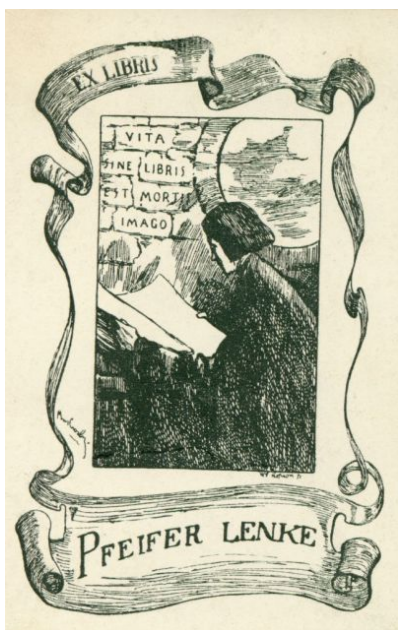 EX LIBRIS
VITA
SINE LIBRIS
EST MORTIS
IMAGO
PFEIFER LENKE